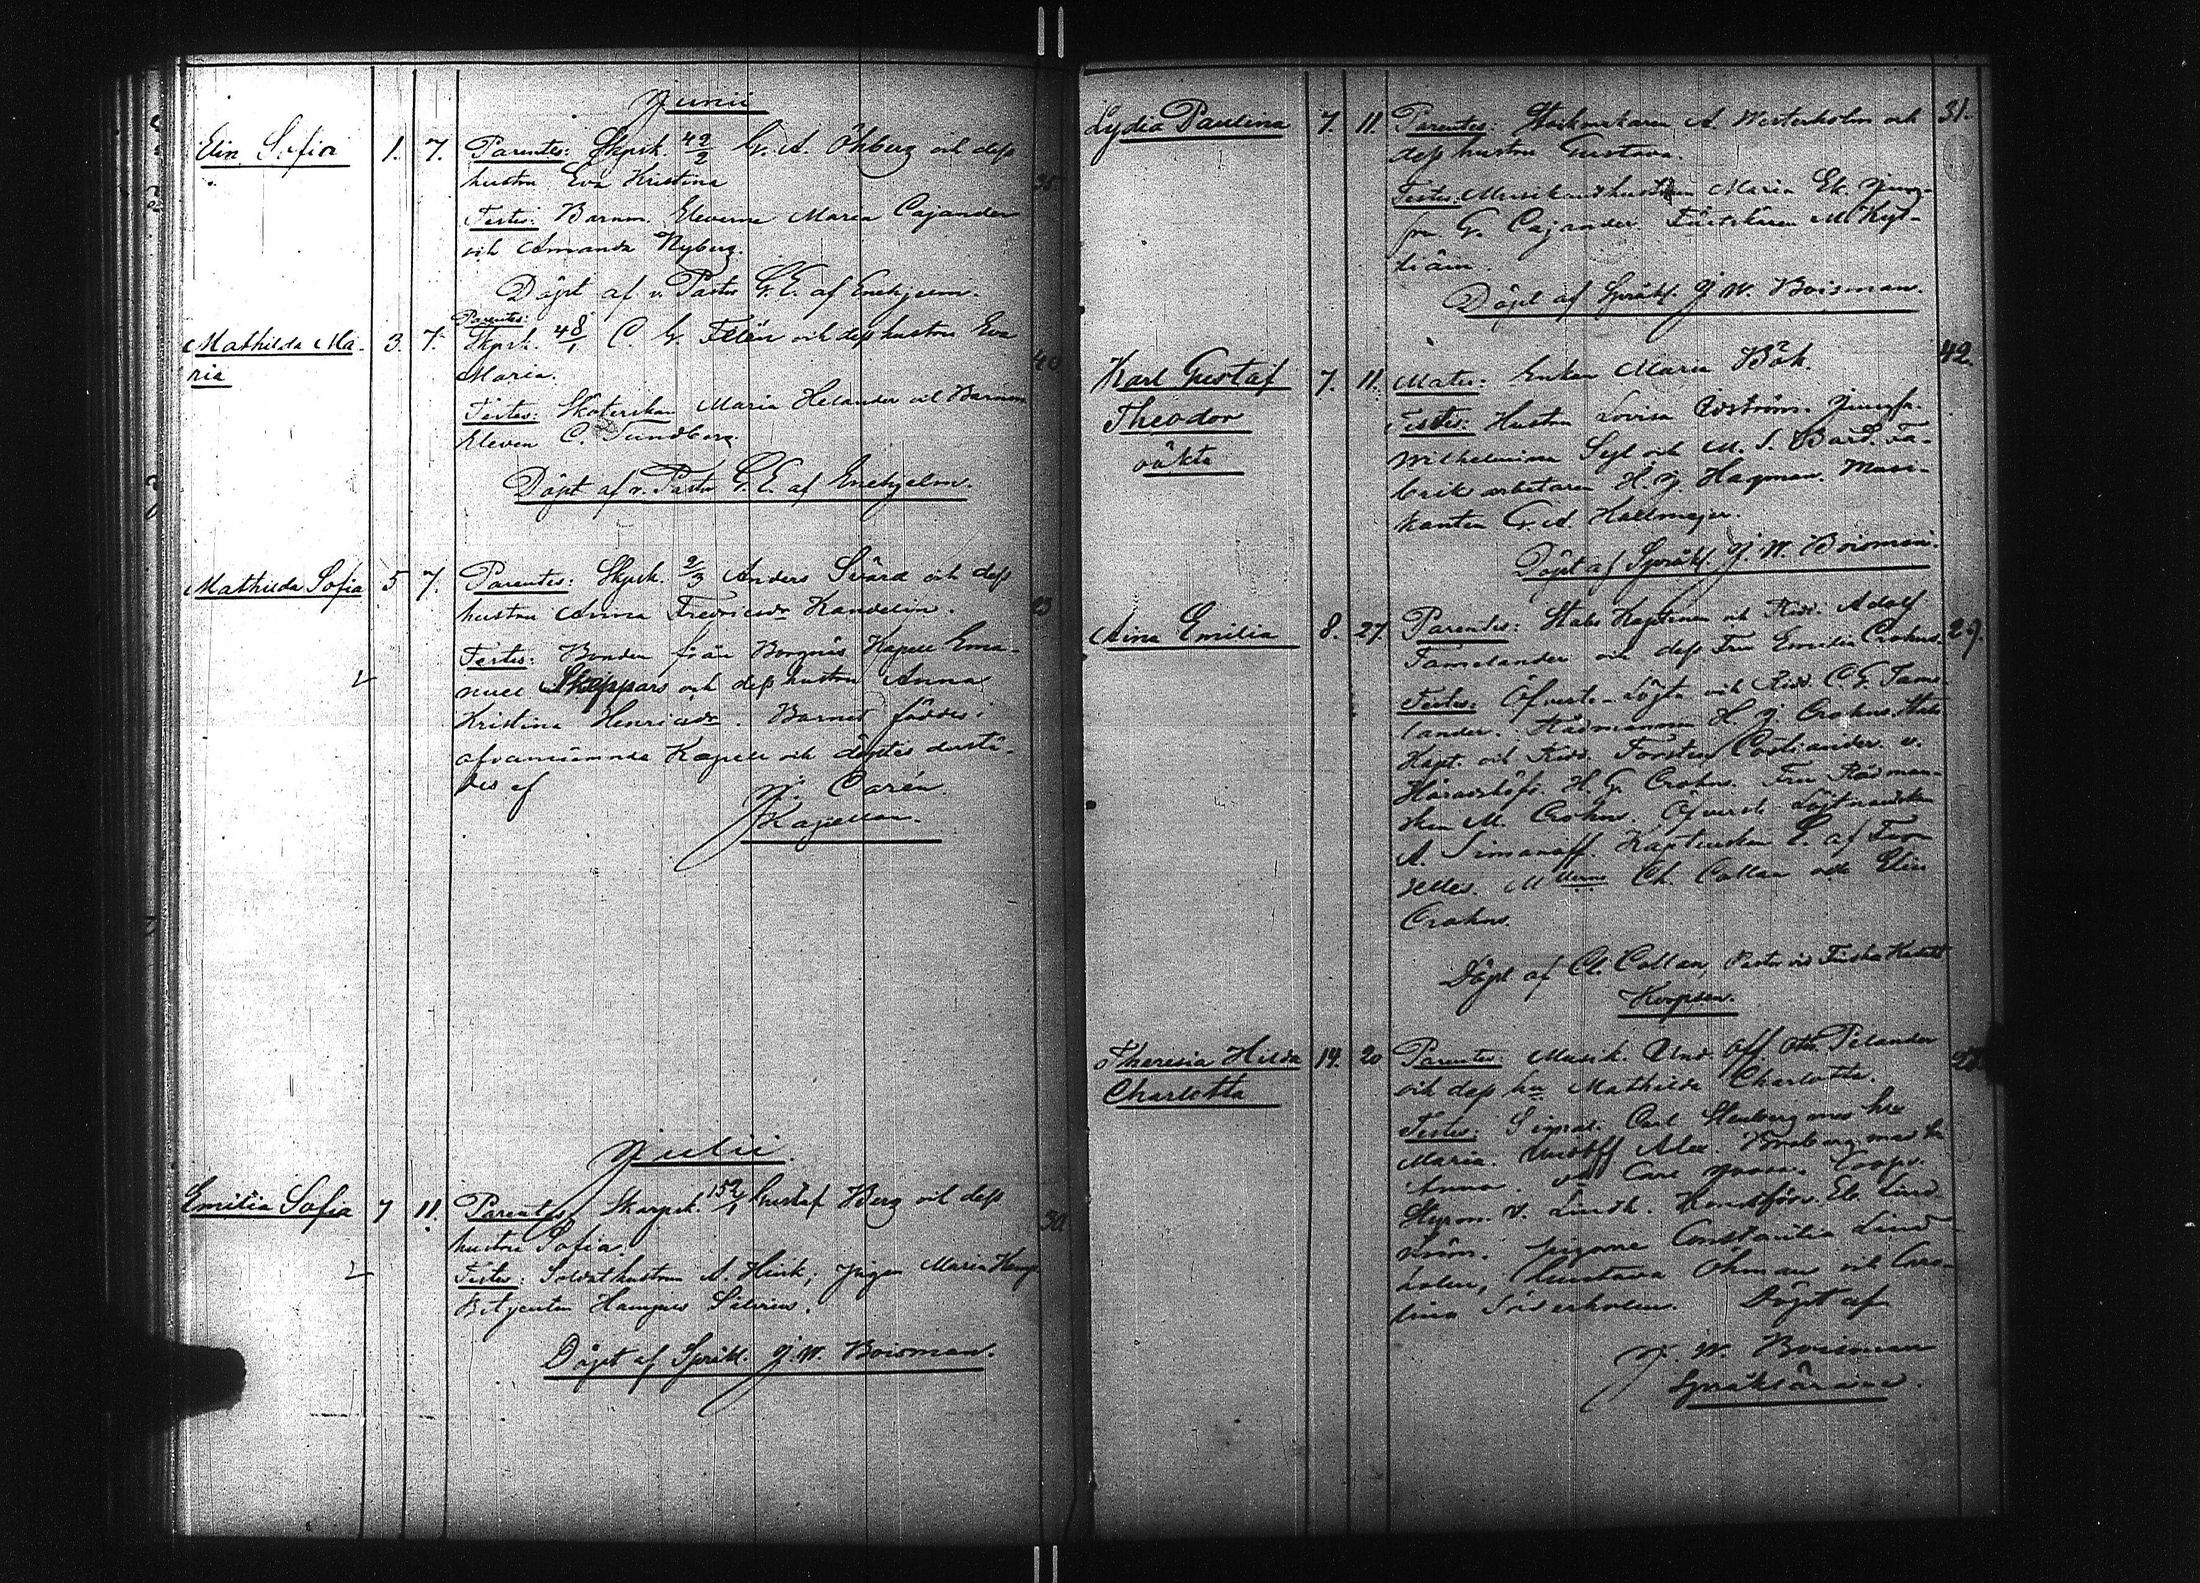 Junii
Elin Sofia 1. 7. Parentes: Skpsk. 42/2 G. A. Öhberg och dess
hustru Eva Kristina 35.
Testes: Barnm. Eleverne Maria Cajander
och Amanda Nyberg.
Döpt af v. Pastor G. E. af Enehjelm.
Mathilda Ma- 3. 7. Parentes: Skpsk. 48/1 C. G. Felén och dess hustru Eva
ria Maria. 40
Testes: Maria Helander och Barnm
Eleven C. Sundberg.
Döpt af v. Pastor G. E. af Enehjelm.
Mathilda Sofia 5 7. Parentes: Skpsk. 2/3 Anders Svärd och dess
hustru Anna Fredriksdr Kandelin. 23
Testes: Bonden från Borgnäs Kapell Ema-
nuel Skeppars och dess hustru Anna
Kristina Henriksdr. Barnet föddes i
ofvannämnde Kapell och döptes derstä-
des af
J. Carén.
Kapellan.
Julii
Emilia Sofia 7 11. Parentes: Skarpsk. 152/1 Gustaf Berg och dess
hustru Sofia. 30.
Testes: Soldathustrun A. Hink, Pigan Maria
Betjenten Hampus Silvrius.
Döpt af Språkl. J. W. Boisman.
Lydia Paulina 7. 11. Parentes: A. Westerholm och 31.
dess hustru Gustava.
Testes: Musikanthustrun Maria Ek. Jung-
fru G. Cajander.
Döpt af Språkl. J. W. Boisman.
Karl Gustaf 7. 11. Mater: Enkan Maria Bök. 42.
Theodor Testes: Hustru Lovisa Edström. Jungfr.
oäkta Wilhelmina och M. S. Bard. Fa-
briksarbetaren H. J. Hagman. Musi-
kanten G. A. Hallmayer.
Döpt af Språkl. J. W. Boisman.
Aina Emilia 8. 27. Parentes: Stabs Kaptenen och Ridd. Adolf
Tamelander och dess Fru Emilia Crohns. 29.
Testes: Öfverste-Löjt. och Ridd. C. G. Tame-
lander. Rådmannen H. J. Crohns. Stabs
Kapt. och Ridd. Torsten Costiander. v.
Häradshöfd. H. G. Crohns. Fru Rådman-
skan M. Crohns. Öfverst. Löjtnantskan
A. Simanoff. Kaptenskan E. af
M:llerne Ch. Collan och Elin
Crohns.
Döpt af Cl. Collan, Pastor vid Finska Kadett
Korpsen.
Theresia Hilda 14. 20 Parentes: Musik. Und. Off. Pelander
Charlotta och dess hu Mathilda Charlotta.
Testes: Carl Stenberg med hu
Maria. Und.off. Alex. med hu
Anna. Carl
V. Lindh. El. Lind-
ström. Pigorne Constantia Lind-
holm, Gustava Öhman och Caro-
lina Söderholm. Döpt af
J. W. Boisman
Språklärare.